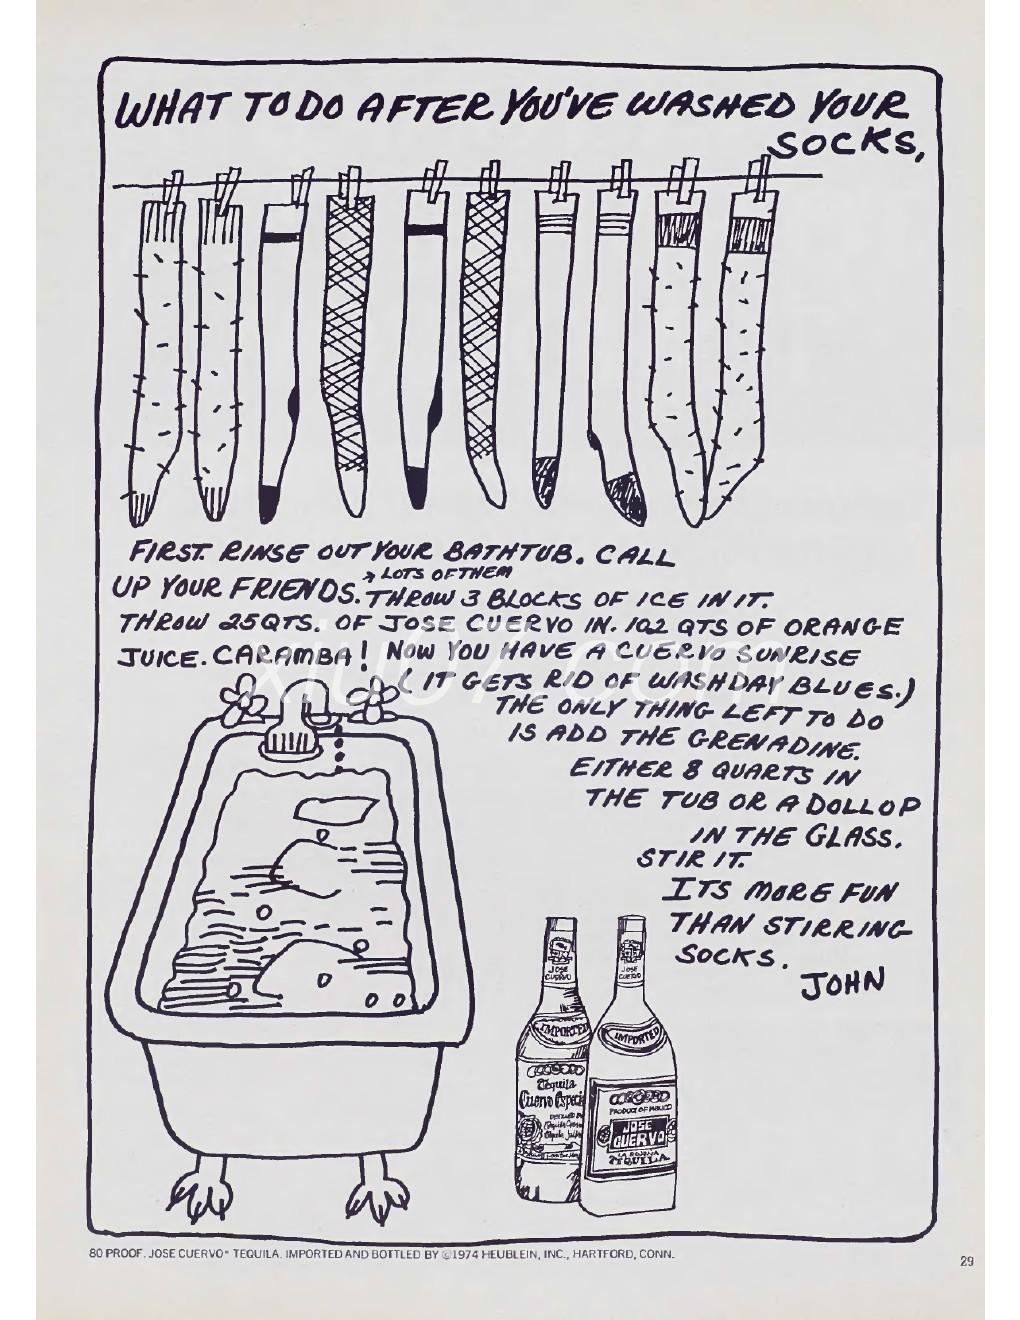 WHAT TO DO AFTER YOU'VE WASHED YOUR
SOCKS,
FIRST. RINSE OUT YOUR BATHTUB. CALL
UP YOUR FRIENDS. → LOTS OF THEM
THROW 3 BLOCKS OF ICE IN IT.
THROW 25QTS. OF JOSE CUERVO IN. 102 QTS OF ORANGE
JUICE. CARAMBA! NOW YOU HAVE A CUERVO SUNRISE
(IT GETS RID OF WASHDAY BLUES.)
THE ONLY THING LEFT TO DO
IS ADD THE GRENADINE.
EITHER 8 QUARTS IN
THE TUB OR A DOLLOP
IN THE GLASS.
STIR IT.
ITS MORE FUN
THAN STIRRING
SOCKS.
JOHN
xiu07.com
JOSE
CUERVO
IMPORTED
Tequila
Cuervo Especial
JOSE
CUERVO
IMPORTED
PRODUCT OF MEXICO
JOSE
CUERVO
TEQUILA
80 PROOF. JOSE CUERVO® TEQUILA. IMPORTED AND BOTTLED BY ©1974 HEUBLEIN, INC., HARTFORD, CONN.
29